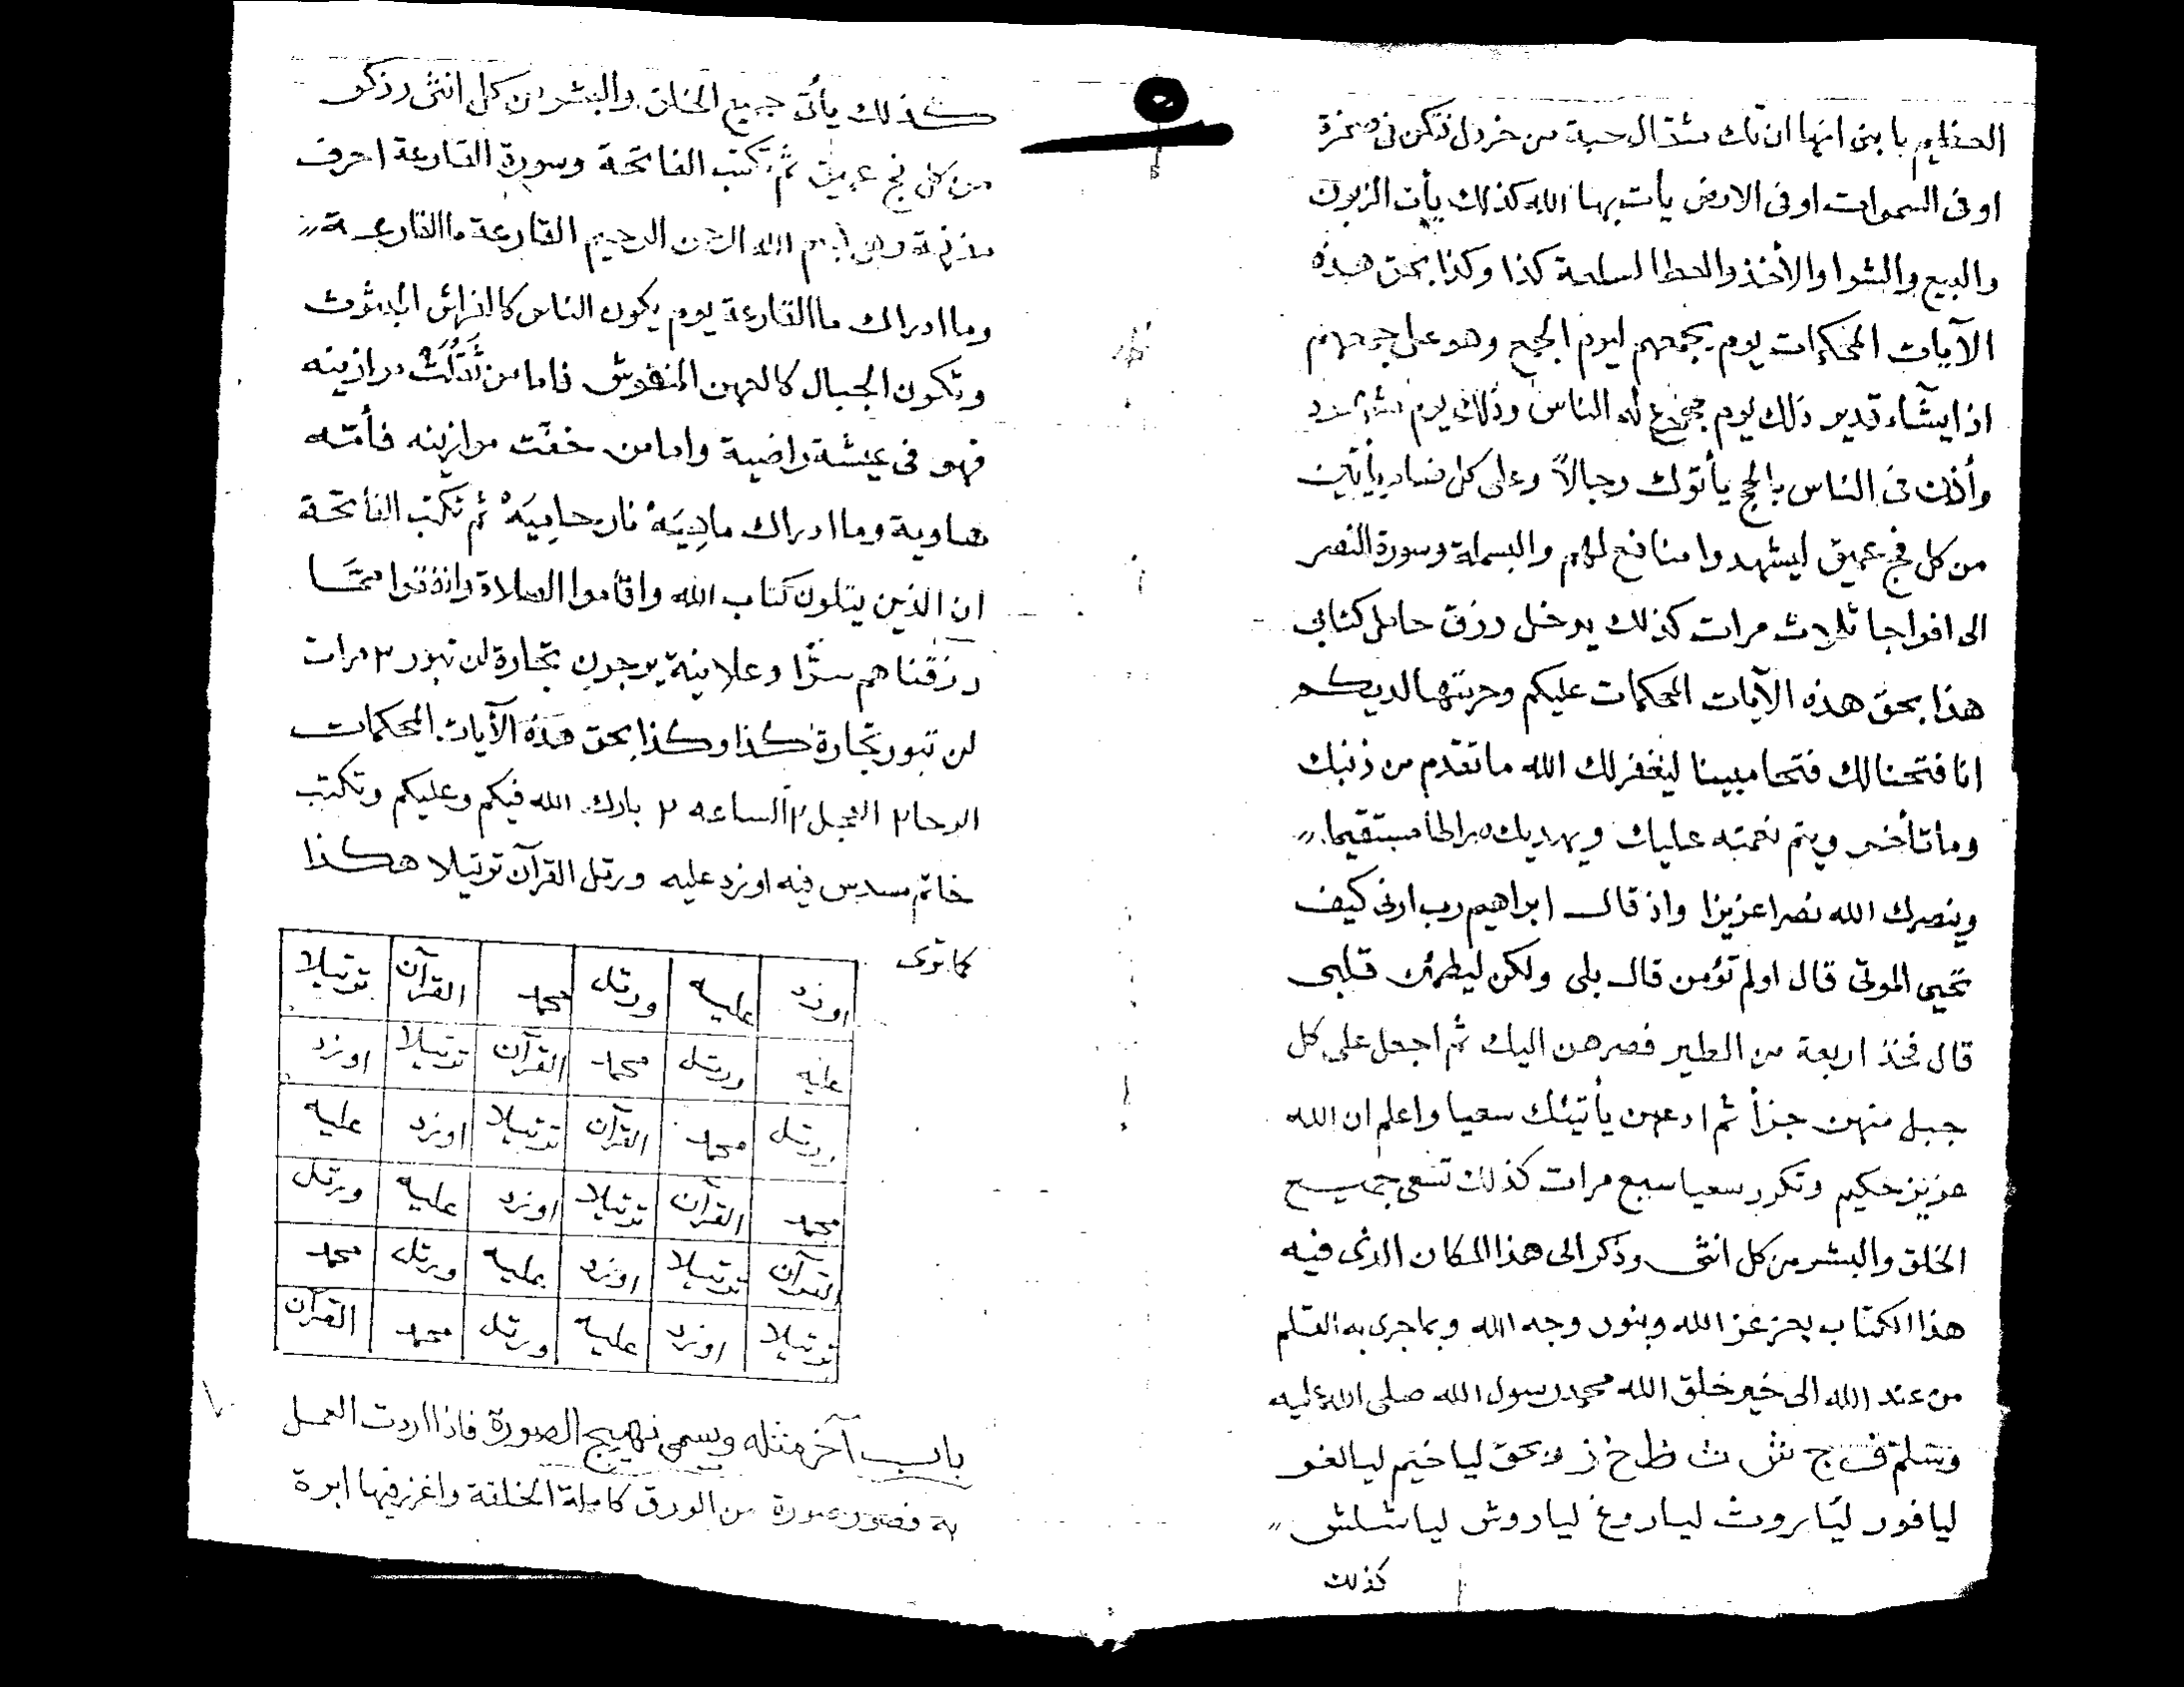 العظيم يا بنى انها ان تك مثقال حبة من خردل فتكن فى صخرة
او فى السموات او فى الارض يأت بها الله كذلك يأت الزبون
والبيع والشوا والأخذ والعطا لسلعة كذا وكذا بحق هذه
الآيات المحكمات يوم يجمعهم ليوم الجمع وهو على جمعهم
اذا يشآء قدير ذلك يوم مجموع له الناس وذلك يوم مشهود
وأذن فى الناس بالحج يأتوك رجالاً وعلى كل ضامر يأتين
من كل فج عميق ليشهدوا منافع لهم والبسملة وسورة النصر
الى افواجا ثلاث مرات كذلك يدخل رزق حامل كتابى
هذا بحق هذه الآيات المحكمات عليكم وحرمتها لديكم
انا فتحنا لك فتحا مبينا ليغفر لك الله ما تقدم من ذنبك
وما تأخر ويتم نعمته عليك ويهديك صراطا مستقيما
وينصرك الله نصرا عزيزا واذ قال ابراهيم رب ارنى كيف
تحيى الموتى قال اولم تؤمن قال بلى ولكن ليطمئن قلبى
قال فخذ اربعة من الطير فصرهن اليك ثم اجعل على كل
جبل منهن جزأ ثم ادعهن يأتينك سعيا واعلم ان الله
عزيز حكيم وتكرر سعيا سبع مرات كذلك تسعى جميع
الخلق والبشر من كل انثى وذكر الى هذا المكان الذى فيه
هذا الكتاب بعز عز الله وبنور وجه الله وبما جرى به القلم
من عند الله الى خير خلق الله محمد رسول الله صلى الله عليه
وسلم ف ج ش ث ظ خ ز وبحق لياخيم ليالغو
ليافور لياروث لياروغ لياروش لياشلش
كذلك
كذلك يأتى جميع الخلق والبشر من كل انثى وذكر
من كل فج عميق ثم تكتب الفاتحة وسورة القارعة احرف
مفرقة وهى بسم الله الرحمن الرحيم القارعة ما القارعة
وما ادراك ما القارعة يوم يكون الناس كالفراش المبثوث
وتكون الجبال كالعهن المنفوش فاما من ثَقُلَتْ موازينه
فهو فى عيشة راضية واما من خفت موازينه فأمه
هاوية وما ادراك ماهِيَهْ نار حامِيَهْ ثم تكتب الفاتحة
ان الذين يتلون كتاب الله واقاموا الصلاة وانفقوا ممَّا
رزقناهم سرًّا وعلانية يرجون تجارة لن تبور ٣ مرات
لن تبور تجارة كذا وكذا بحق هذه الآيات المحكمات
الوحا ٢ العجل ٢ الساعه ٢ بارك الله فيكم وعليكم وتكتب
خاتم مسدس فيه اوزد عليه ورتل القرآن ترتيلا هكذا
كما ترى
اوزد عليه ورتل محمد القرآن ترتيلا
عليه ورتل محمد القرآن ترتيلا اوزد
ورتل محمد القرآن ترتيلا اوزد عليه
محمد القرآن ترتيلا اوزد عليه ورتل
القرآن ترتيلا اوزد عليه ورتل محمد
ترتيلا اوزد عليه ورتل محمد القرآن
باب آخر مثله ويسمى تهييج الصورة فاذا اردت العمل
به فصور صورة من الورق كاملة الخلقة واغرز فيها ابرة